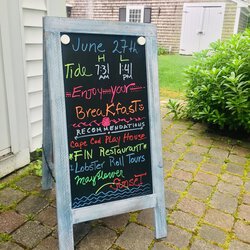 June 27th
H L
Tide 7:31 1:41
AM PM
Enjoy your
Breakfasts
RECOMMENDATIONS
Cape Cod Play House
*FIN Restaurant*
Lobster Roll Tours
Mayflower
Sunset